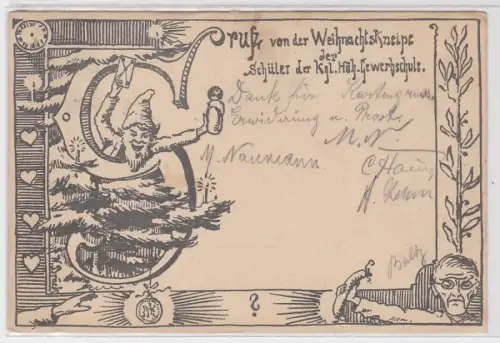 Gruß von der Weihnachtskneipe
der
Schüler der Kgl. Höh. Gewerbschule.
Dank für
Erwiderung u. Prost.
M. N.
M. Naumann.
C. Haug
?